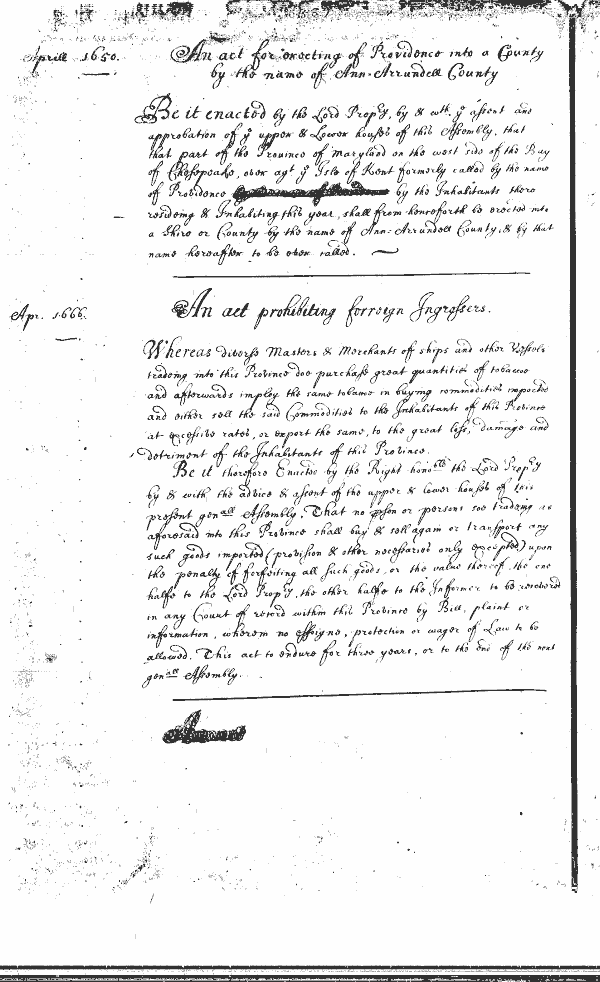 Aprill 1650.
An act for erecting of Providence into a County
by the name of Ann-Arrundell County
Be it enacted by the Lord Propry, by & wth ye assent and
approbation of ye upper & Lower houses of this Assembly, that
that part of the Province of Maryland on the west side of the Bay
of Chesepeake, over agt ye Isle of Kent formerly called by the name
of Providence by the Inhabitants there
resideing & Inhabiting this year, shall from henceforth be erected into
a Shire or County by the name of Ann-Arrundell County, & by that
name hereafter to be ever called.
Apr. 1666.
An act prohibiting forreign Ingrossers.
Whereas diverse Masters & Merchants off ships and other Vessels
tradeing into this Province doe purchase great quantities of tobacco
and afterwards imploy the same tobacco in buying commodities imported
and either sell the said Commodities to the Inhabitants of this Province
at excessive rates, or export the same, to the great loss, damage and
detriment of the Inhabitants of this Province.
Be it therefore Enacted by the Right honoble the Lord Propry
by & with the advice & assent of the upper & lower houses of this
present genall Assembly, That no pson or persons soe tradeing as
aforesaid into this Province shall buy & sell again or transport any
such goods imported (provision & other necessaries only excepted) upon
the penalty of forfeiting all such goods, or the value thereof, the one
halfe to the Lord Propry, the other halfe to the Informer to be recovered
in any Court of record within this Province by Bill, plaint or
information, wherein no essoigne, protection or wager of Law to be
allowed. This act to endure for three years, or to the end of the next
genall Assembly.